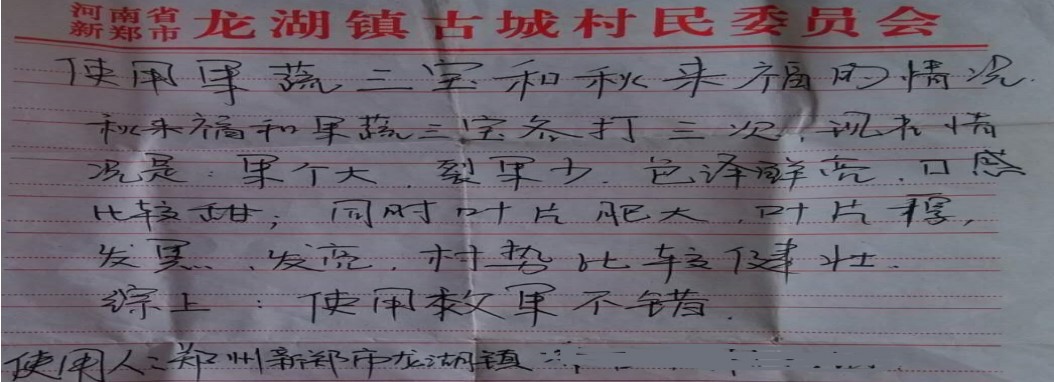 河南省
新郑市 龙湖镇古城村民委员会
使用果蔬三宝和秋来福的情况.
秋来福和果蔬三宝各打三次,现在情
况是:果个大.裂果少.色泽鲜亮.口感
比较甜;同时叶片肥大.叶片厚,
发黑、发亮.树势比较健壮.
综上:使用效果不错.
使用人:郑州新郑市龙湖镇